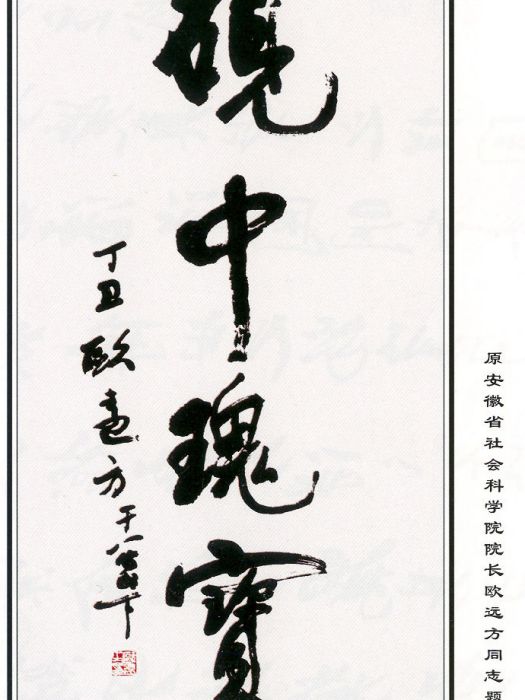 硯中瑰寶
丁丑欧远方于八公山下
原安徽省社会科学院院长欧远方同志题